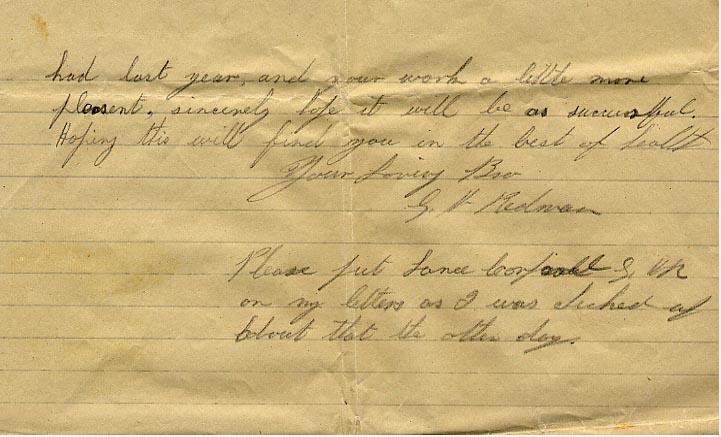 had last year, and your work a little more
pleasent, sincerely hope it will be as successful.
Hoping this will find you in the best of health
Your Loving Bro
G. H Redman
Please put Lance Corporal G, HR
on my letters as I was checked up
about that the other day.